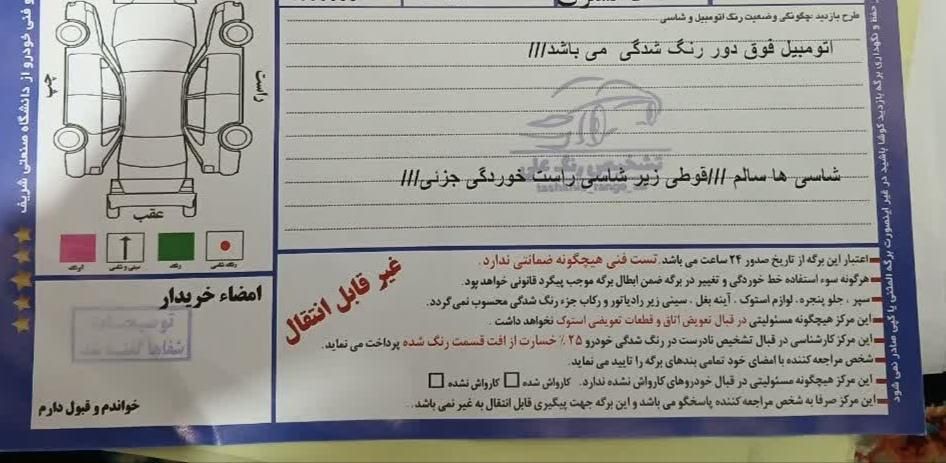 طرح بازدید :چگونگی وضعیت رنگ اتومبیل و شاسی
اتومبیل فوق دور رنگ شدگی می باشد///
تشخیص رنگ علی
شاسی ها سالم ///قوطی زیر شاسی راست خوردگی جزئی///
راست
چپ
عقب
رنگ، لکه‌گیری
رنگ
سینی و شاسی
امضاء خریدار
توضیحات
شفاها گفته شد
خواندم و قبول دارم
غیر قابل انتقال
اعتبار این برگه از تاریخ صدور ۲۴ ساعت می باشد. تست فنی هیچگونه ضمانتی ندارد.
هرگونه سوء استفاده خط خوردگی و تغییر در برگه ضمن ابطال برگه موجب پیگرد قانونی خواهد بود.
سپر ، جلو پنجره ، لوازم استوک ، آینه بغل ، سینی زیر رادیاتور و رکاب جزء رنگ شدگی محسوب نمی گردد.
این مرکز هیچگونه مسئولیتی در قبال تعویض اتاق و قطعات تعویضی استوک نخواهد داشت .
این مرکز کارشناسی در قبال تشخیص نادرست در رنگ شدگی خودرو ۲۵ ٪ خسارت از افت قسمت رنگ شده پرداخت می نماید.
شخص مراجعه کننده با امضای خود تمامی بندهای برگه را تایید می نماید.
این مرکز هیچگونه مسئولیتی در قبال خودروهای کارواش نشده ندارد. کارواش شده کارواش نشده
این مرکز صرفا به شخص مراجعه کننده پاسخگو می باشد و این برگه جهت پیگیری قابل انتقال به غیر نمی باشد.
و فنی خودرو از دانشگاه صنعتی شریف
حفظ و نگهداری برگه بازدید کوشا باشید در غیر اینصورت برگه المثنی یا کپی صادر نمی شود